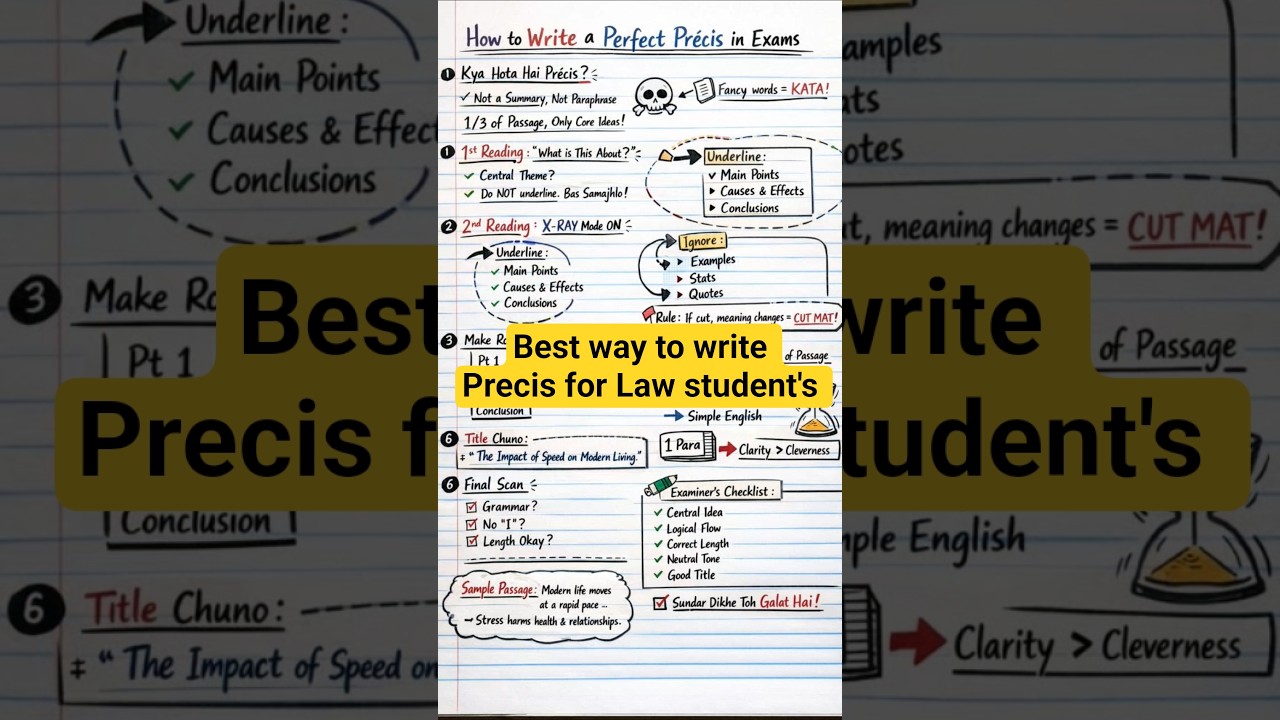 How to Write a Perfect Précis in Exams
1 Kya Hota Hai Précis?
✓ Not a Summary, Not Paraphrase
1/3 of Passage, Only Core Ideas!
Fancy words = KATA!
1 1st Reading : "What is This About?"
✓ Central Theme?
✓ Do NOT underline. Bas Samajhlo!
Underline:
✓ Main Points
▸ Causes & Effects
▸ Conclusions
2 2nd Reading : X-RAY Mode ON
Underline:
✓ Main Points
✓ Causes & Effects
✓ Conclusions
Ignore:
▸ Examples
▸ Stats
▸ Quotes
Rule: If cut, meaning changes = CUT MAT!
3 Make Ro
Pt 1
of Passage
Best way to write
Precis for Law student's
Conclusion
→ Simple English
6 Title Chuno:
‡ "The Impact of Speed on Modern Living."
1 Para → Clarity > Cleverness
6 Final Scan
☑ Grammar?
☑ No "I"?
☑ Length Okay?
Examiner's Checklist:
✓ Central Idea
✓ Logical Flow
✓ Correct Length
✓ Neutral Tone
✓ Good Title
Sample Passage: Modern life moves
at a rapid pace ...
→ Stress harms health & relationships.
☑ Sundar Dikhe Toh Galat Hai!